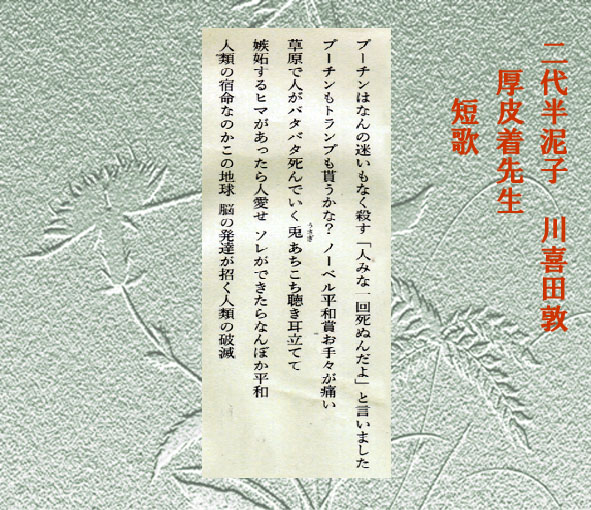 二代半泥子　川喜田敦
厚皮着先生
短歌
プーチンはなんの迷いもなく殺す「人みな一回死ぬんだよ」と言いました
プーチンもトランプも貰うかな？ノーベル平和賞お手々が痛い
草原で人がバタバタ死んでいく兎うさぎあちこち聴き耳立てて
嫉妬するヒマがあったら人愛せ　ソレができたらなんぼか平和
人類の宿命なのかこの地球　脳の発達が招く人類の破滅